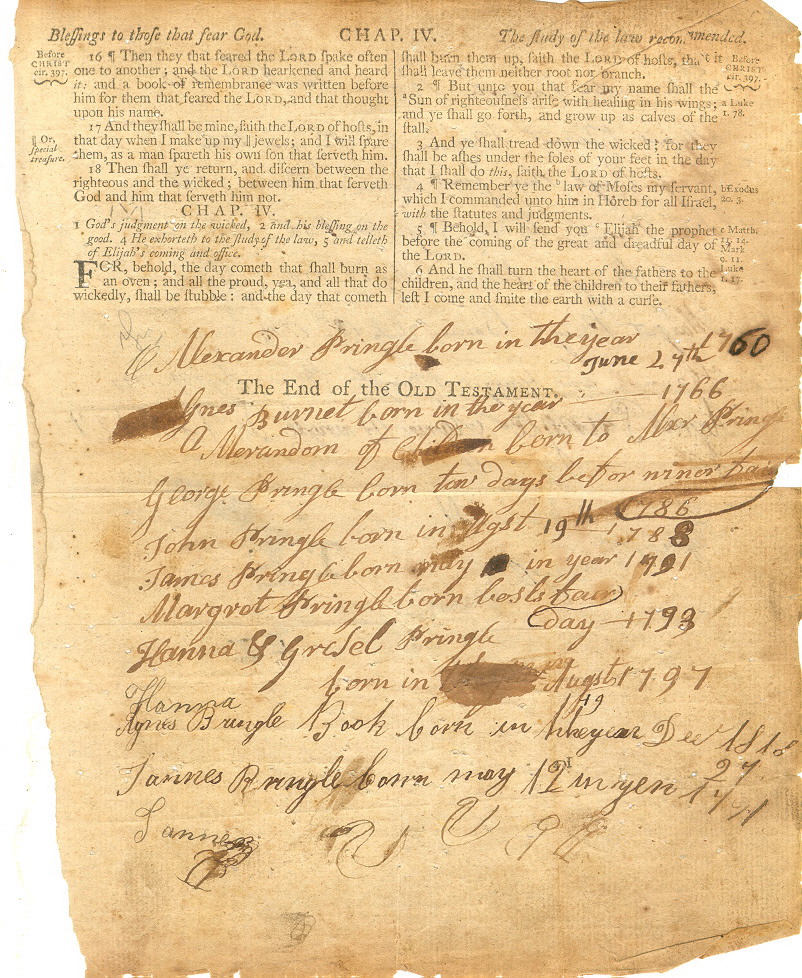 Bleſſings to thoſe that fear God.
CHAP. IV.
The ſtudy of the law recommended.
Before
CHRIST
cir. 397.
16 ¶ Then they that feared the LORD ſpake often
one to another; and the LORD hearkened and heard
it: and a book of remembrance was written before
him for them that feared the LORD, and that thought
upon his name.
¶ Or,
ſpecial
treaſure.
17 And they ſhall be mine, ſaith the LORD of hoſts, in
that day when I make up my ‖ jewels; and I will ſpare
them, as a man ſpareth his own ſon that ſerveth him.
18 Then ſhall ye return, and diſcern between the
righteous and the wicked; between him that ſerveth
God and him that ſerveth him not.
CHAP. IV.
1 God's judgment on the wicked, 2 and his bleſſing on the
good. 4 He exhorteth to the ſtudy of the law, 5 and telleth
of Elijah's coming and office.
FOR, behold, the day cometh that ſhall burn as
an oven; and all the proud, yea, and all that do
wickedly, ſhall be ſtubble: and the day that cometh
ſhall burn them up, ſaith the LORD of hoſts, that it
ſhall leave them neither root nor branch.
Before
CHRIST
cir. 397.
2 ¶ But unto you that fear my name ſhall the
a Sun of righteouſneſs ariſe with healing in his wings;
and ye ſhall go forth, and grow up as calves of the
ſtall.
a Luke
1. 78.
3 And ye ſhall tread down the wicked; for they
ſhall be aſhes under the ſoles of your feet in the day
that I ſhall do this, ſaith the LORD of hoſts.
4 ¶ Remember ye the b law of Moſes my ſervant,
which I commanded unto him in Horeb for all Iſrael,
with the ſtatutes and judgments.
b Exodus
20. 3.
5 ¶ Behold, I will ſend you c Elijah the prophet
before the coming of the great and dreadful day of
the LORD.
c Matth.
11. 14.
Mark
9. 11.
Luke
1. 17.
6 And he ſhall turn the heart of the fathers to the
children, and the heart of the children to their fathers,
leſt I come and ſmite the earth with a curſe.
Alexander Pringle born in the year 1760
June 27th
The End of the OLD TESTAMENT.
Agnes Burnet born in the year 1766
A Merandom of born to Alexr Pringle
George Pringle born tow days befor
1786
John Pringle born in Agst 19th 1788
James Pringle born may in year 1791
Margrot Pringle born bosls fair
day 1793
Hanna & Grisel Pringle
born in Augst 1797
Hanna 19
Agnes Pringle Book born in the year Decr 1818
27
Jannes Pringle born may 12 in yen 1791
Janne